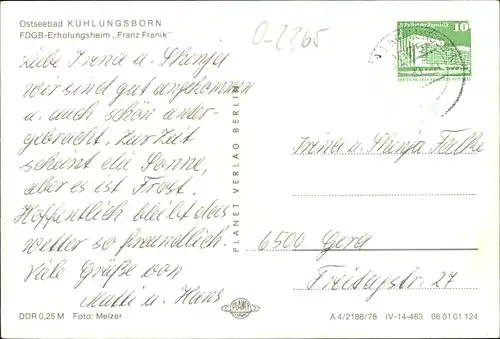 Ostseebad KÜHLUNGSBORN
FDGB-Erholungsheim „Franz Franik"
O-2365
10
Liebe Irina u. Shenja
wir sind gut angekommen
u. auch schön unter-
gebracht. Zur Zeit
scheint die Sonne,
aber es ist Frost.
Hoffentlich bleibt das
wetter so freundlich.
Viele Grüße von
Mutti u. Hans
PLANET VERLAG BERLIN
Irina u. Shenja Falke
6500 Gera
Freitagstr. 27
DDR 0,25 M Foto: Melzer
PLANET
A 4/2188/78 IV-14-483 06 01 01 124